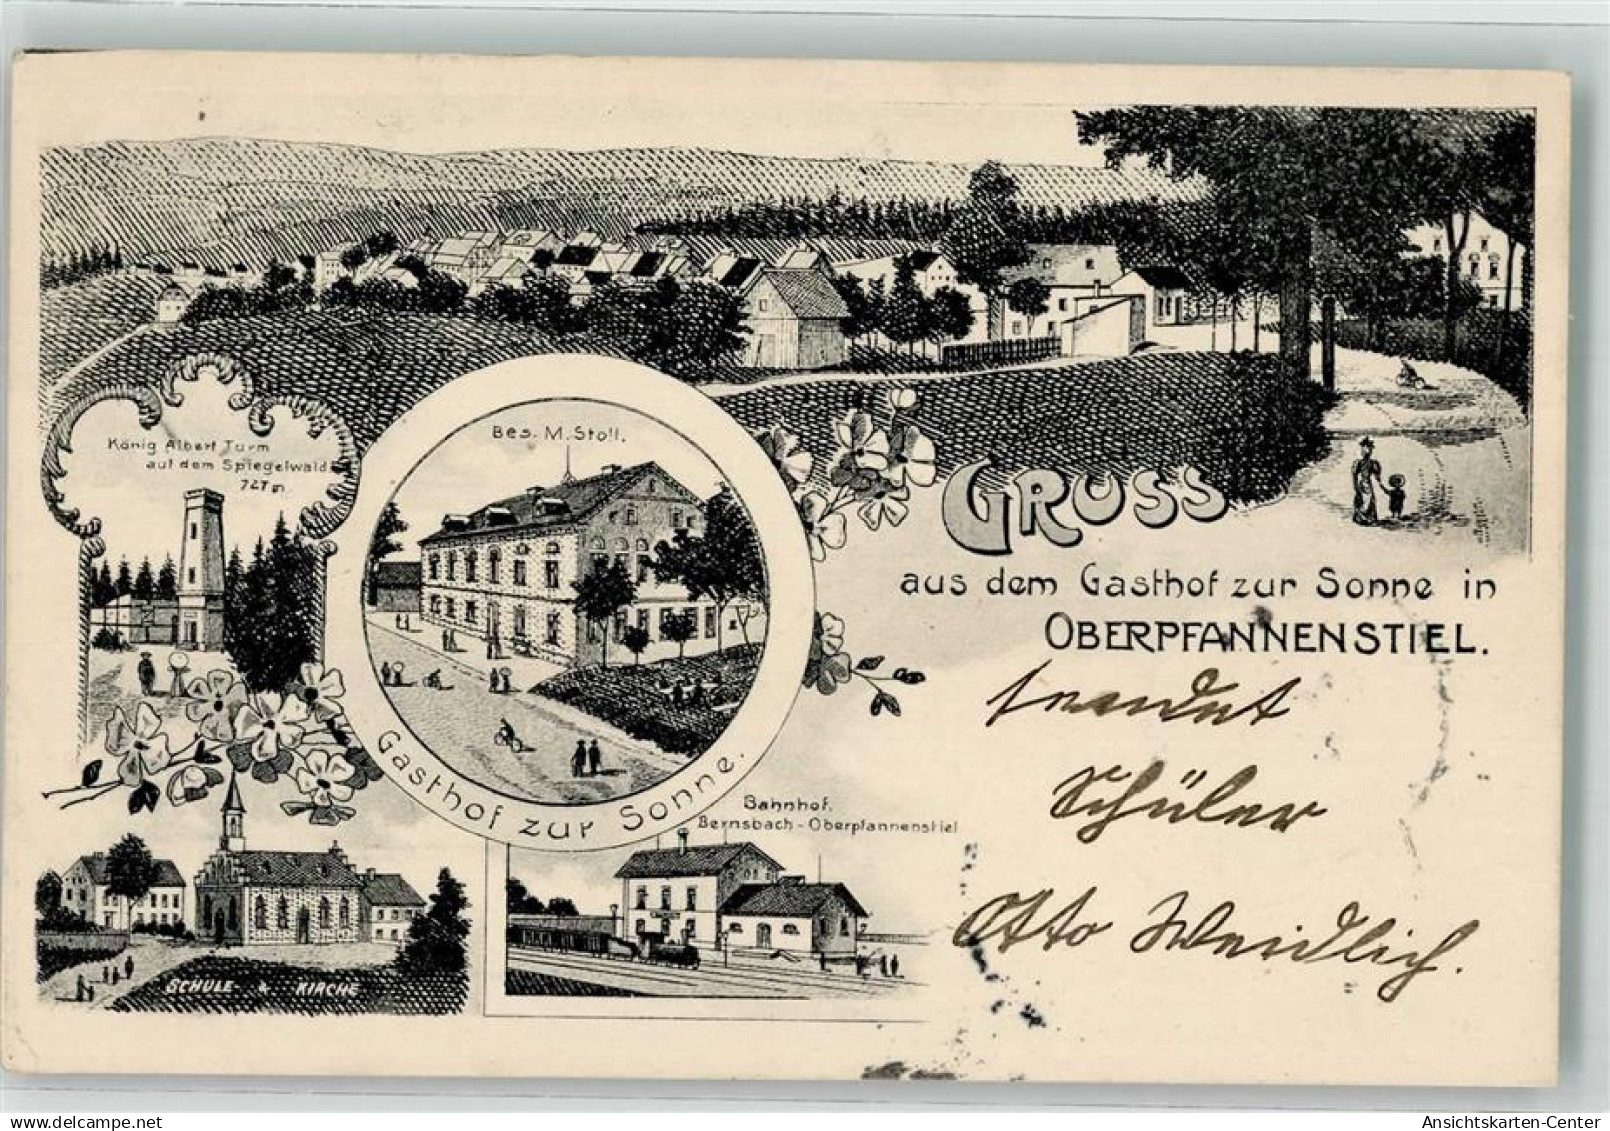 König Albert Turm
auf dem Spiegelwald
727 m.
Bes. M. Stoll.
Gasthof zur Sonne.
GRUSS
aus dem Gasthof zur Sonne in
OBERPFANNENSTIEL.
sendet
Schüler
Otto Weidlich.
Bahnhof.
Bernsbach-Oberpfannenstiel
SCHULE & KIRCHE
www.delcampe.net
Ansichtskarten-Center